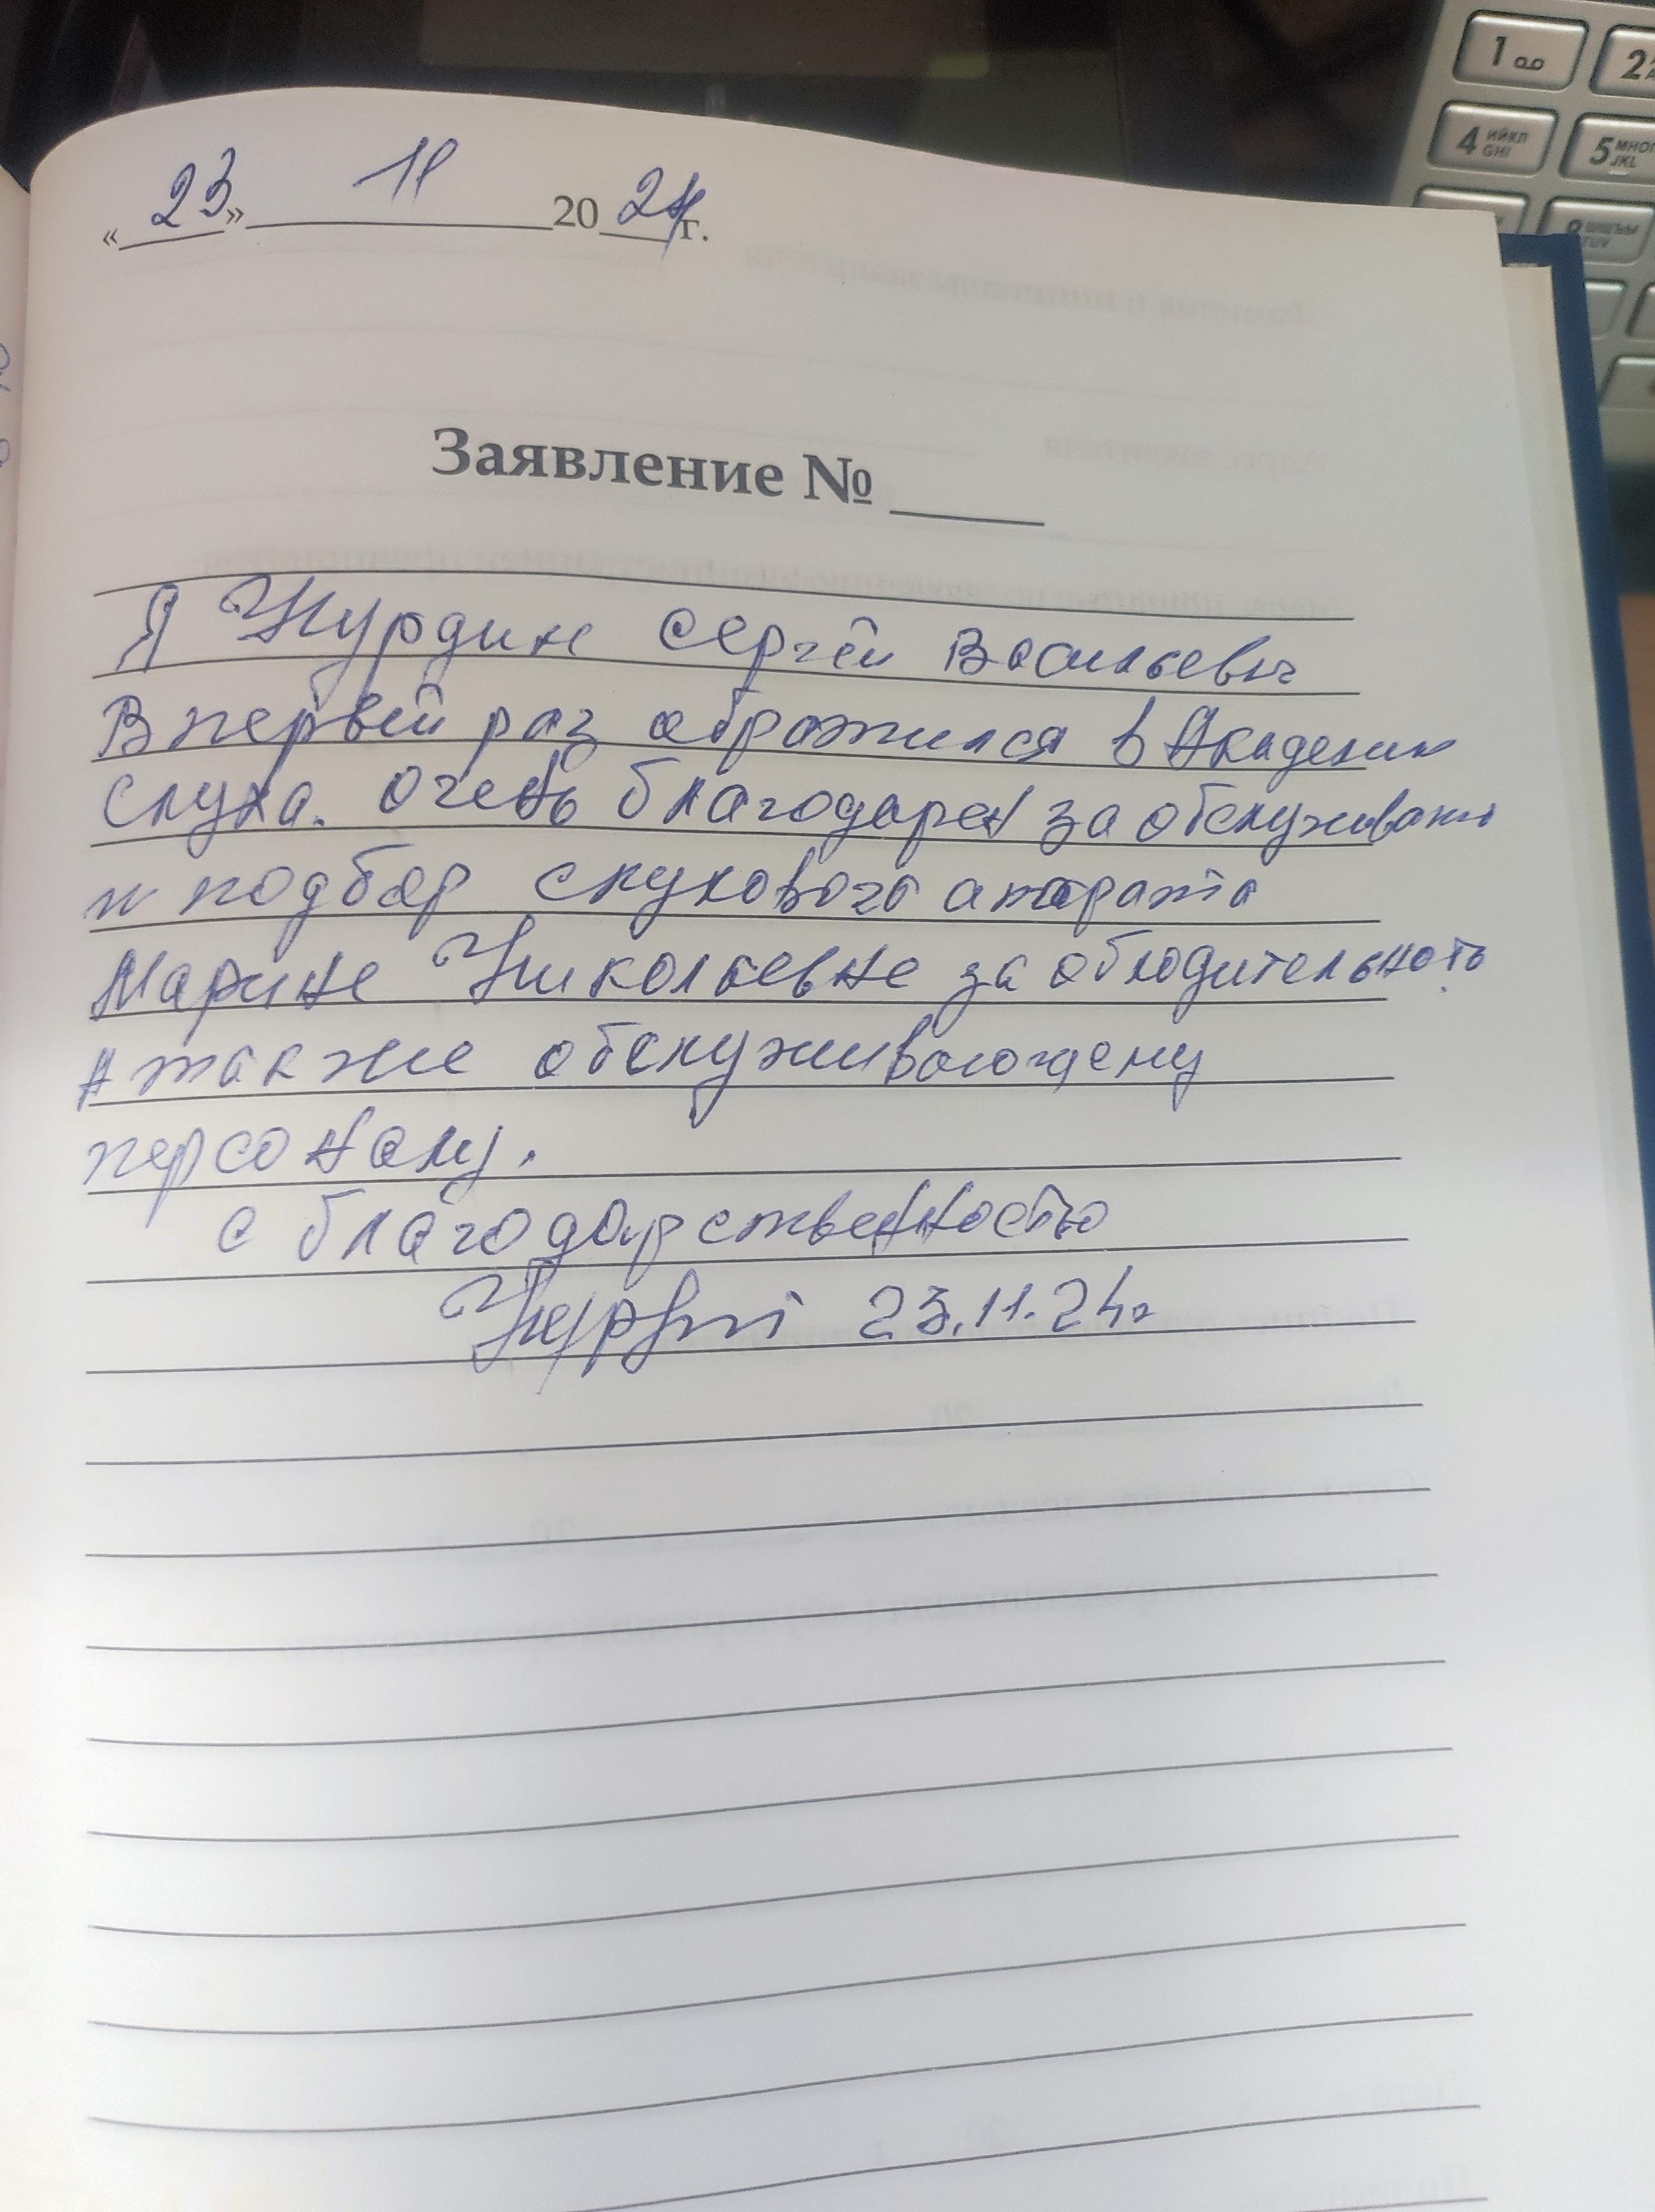 «23» 11 2024г.
Заявление № ____
Я Нурдин Сергей Васильевич
В первый раз обратился в Академию
слуха. Очень благодарен за обслуживание
и подбор слухового аппарата
Марине Николаевне за обходительность
а также обслуживающему
персоналу.
с благодарственностью
23.11.24г
1
2
4 ИЙКЛ GHI
5 МНОП JKL
8 ШЩЪЫ TUV